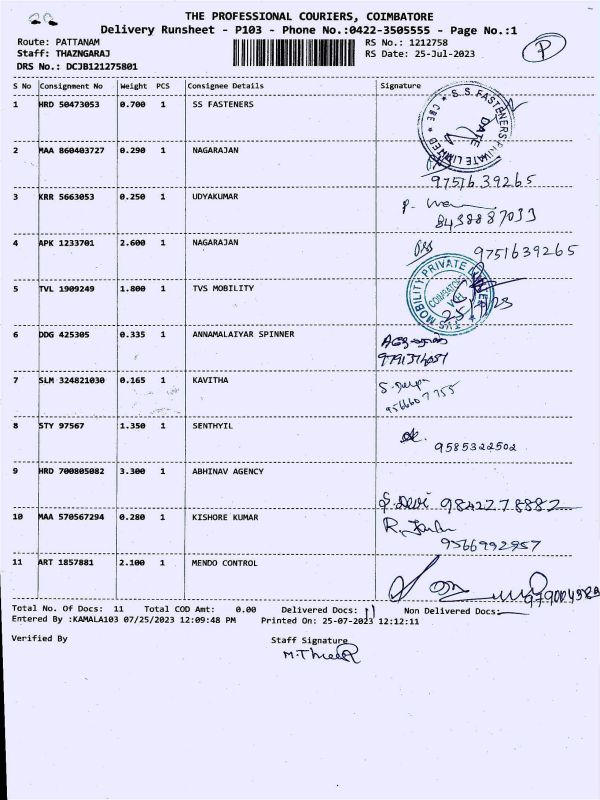 22
THE PROFESSIONAL COURIERS, COIMBATORE
Delivery Runsheet - P103 - Phone No.:0422-3505555 - Page No.:1
Route: PATTANAM
RS No.: 1212758
P
Staff: THAZNGARAJ
RS Date: 25-Jul-2023
DRS No.: DCJB121275801
S No Consignment No Weight PCS Consignee Details Signature
1 HRD 50473053 0.700 1 SS FASTENERS
S.S. FASTENERS PRIVATE LIMITED * CBE *
DATE
2 MAA 860403727 0.290 1 NAGARAJAN
9751639265
3 KRR 5663053 0.250 1 UDYAKUMAR
8438887033
4 APK 1233701 2.600 1 NAGARAJAN
9751639265
5 TVL 1909249 1.800 1 TVS MOBILITY
TVS MOBILITY PRIVATE LIMITED
COIMBATORE
6 DDG 425305 0.335 1 ANNAMALAIYAR SPINNER
7 SLM 324821030 0.165 1 KAVITHA
9566607755
8 STY 97567 1.350 1 SENTHYIL
9585322502
9 HRD 700805082 3.300 1 ABHINAV AGENCY
S. Devi 9842278882
10 MAA 570567294 0.280 1 KISHORE KUMAR
9566992957
11 ART 1857881 2.100 1 MENDO CONTROL
Total No. Of Docs: 11 Total COD Amt: 0.00 Delivered Docs: 11 Non Delivered Docs:
Entered By :KAMALA103 07/25/2023 12:09:48 PM Printed On: 25-07-2023 12:12:11
Verified By Staff Signature